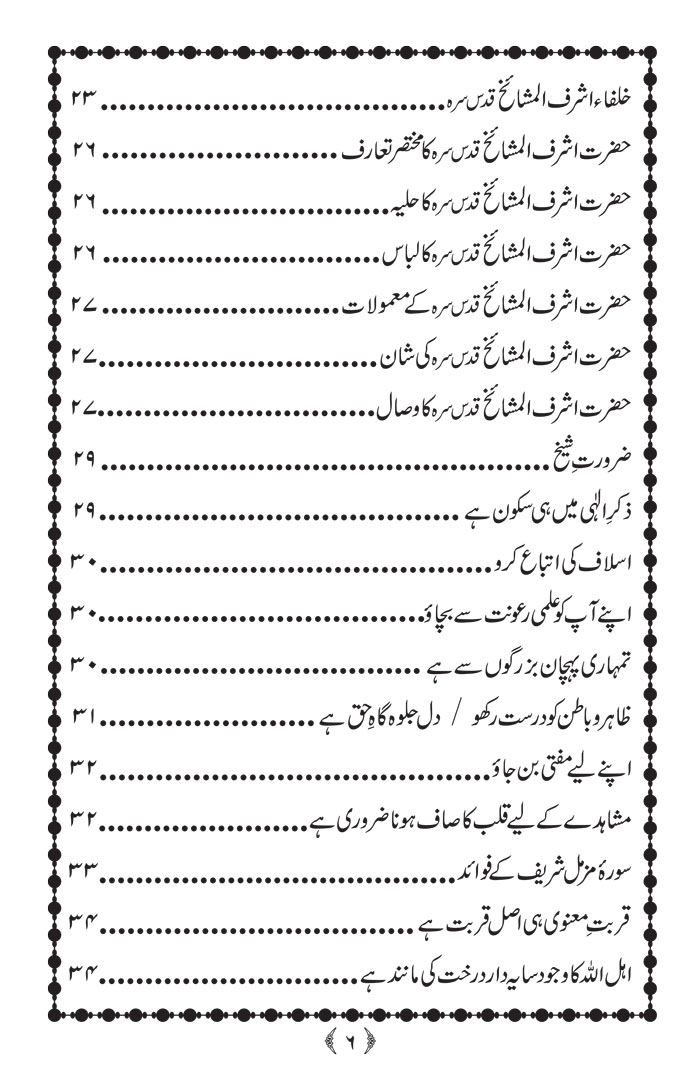 خلفاء اشرف المشائخ قدس سرہ ............................................. ۲۳
حضرت اشرف المشائخ قدس سرہ کا مختصر تعارف ............................... ۲۶
حضرت اشرف المشائخ قدس سرہ کا حلیہ ...................................... ۲۶
حضرت اشرف المشائخ قدس سرہ کا لباس ..................................... ۲۶
حضرت اشرف المشائخ قدس سرہ کے معمولات ............................... ۲۷
حضرت اشرف المشائخ قدس سرہ کی شان ..................................... ۲۷
حضرت اشرف المشائخ قدس سرہ کا وصال ..................................... ۲۷
ضرورتِ شیخ ........................................................... ۲۹
ذکرِ الٰہی میں ہی سکون ہے ............................................... ۲۹
اسلاف کی اتباع کرو .................................................... ۳۰
اپنے آپ کو علمی رعونت سے بچاؤ ........................................... ۳۰
تمہاری پہچان بزرگوں سے ہے .......................................... ۳۰
ظاہر و باطن کو درست رکھو / دل جلوہ گاہِ حق ہے ............................ ۳۱
اپنے لیے مفتی بن جاؤ .................................................... ۳۲
مشاہدے کے لیے قلب کا صاف ہونا ضروری ہے ............................ ۳۲
سورۂ مزمل شریف کے فوائد ............................................... ۳۳
قربتِ معنوی ہی اصل قربت ہے .......................................... ۳۴
اہل اللہ کا وجود سایہ دار درخت کی مانند ہے .................................. ۳۴
﴿ ۶ ﴾